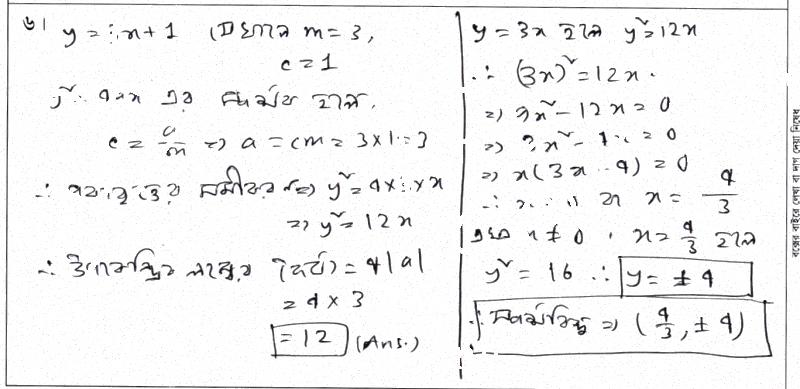 ৬। y = 3x + 1 এখানে m = 3,
c = 1
y² = 4ax এর স্পর্শক হলে,
c = a/m ⇒ a = cm = 3×1 = 3
∴ পরাবৃত্তের সমীকরণ ⇒ y² = 4×3×x
⇒ y² = 12x
∴ উপকেন্দ্রিক লম্বের দৈর্ঘ্য = 4|a|
= 4 × 3
= 12 (Ans.)
y = 3x হলে y² = 12x
∴ (3x)² = 12x
⇒ 9x² - 12x = 0
⇒ 3x² - 4x = 0
⇒ x(3x - 4) = 0
∴ x = 0 বা x = 4/3
x ≠ 0, x = 4/3 হলে
y² = 16 ∴ y = ± 4
∴ স্পর্শবিন্দু ⇒ (4/3, ± 4)
বক্সের বাইরে লেখা বা দাগ দেয়া নিষেধ